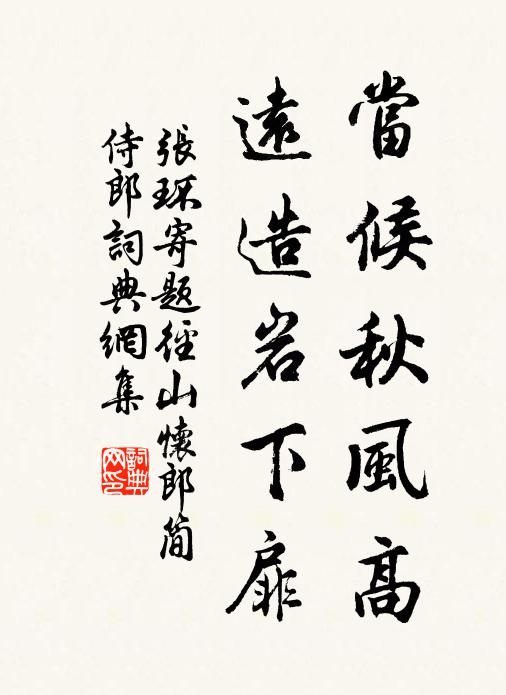 當候秋風高
遠造岩下扉
張琛寄題徑山懷郎簡
侍郎詞典網集
詞典网印